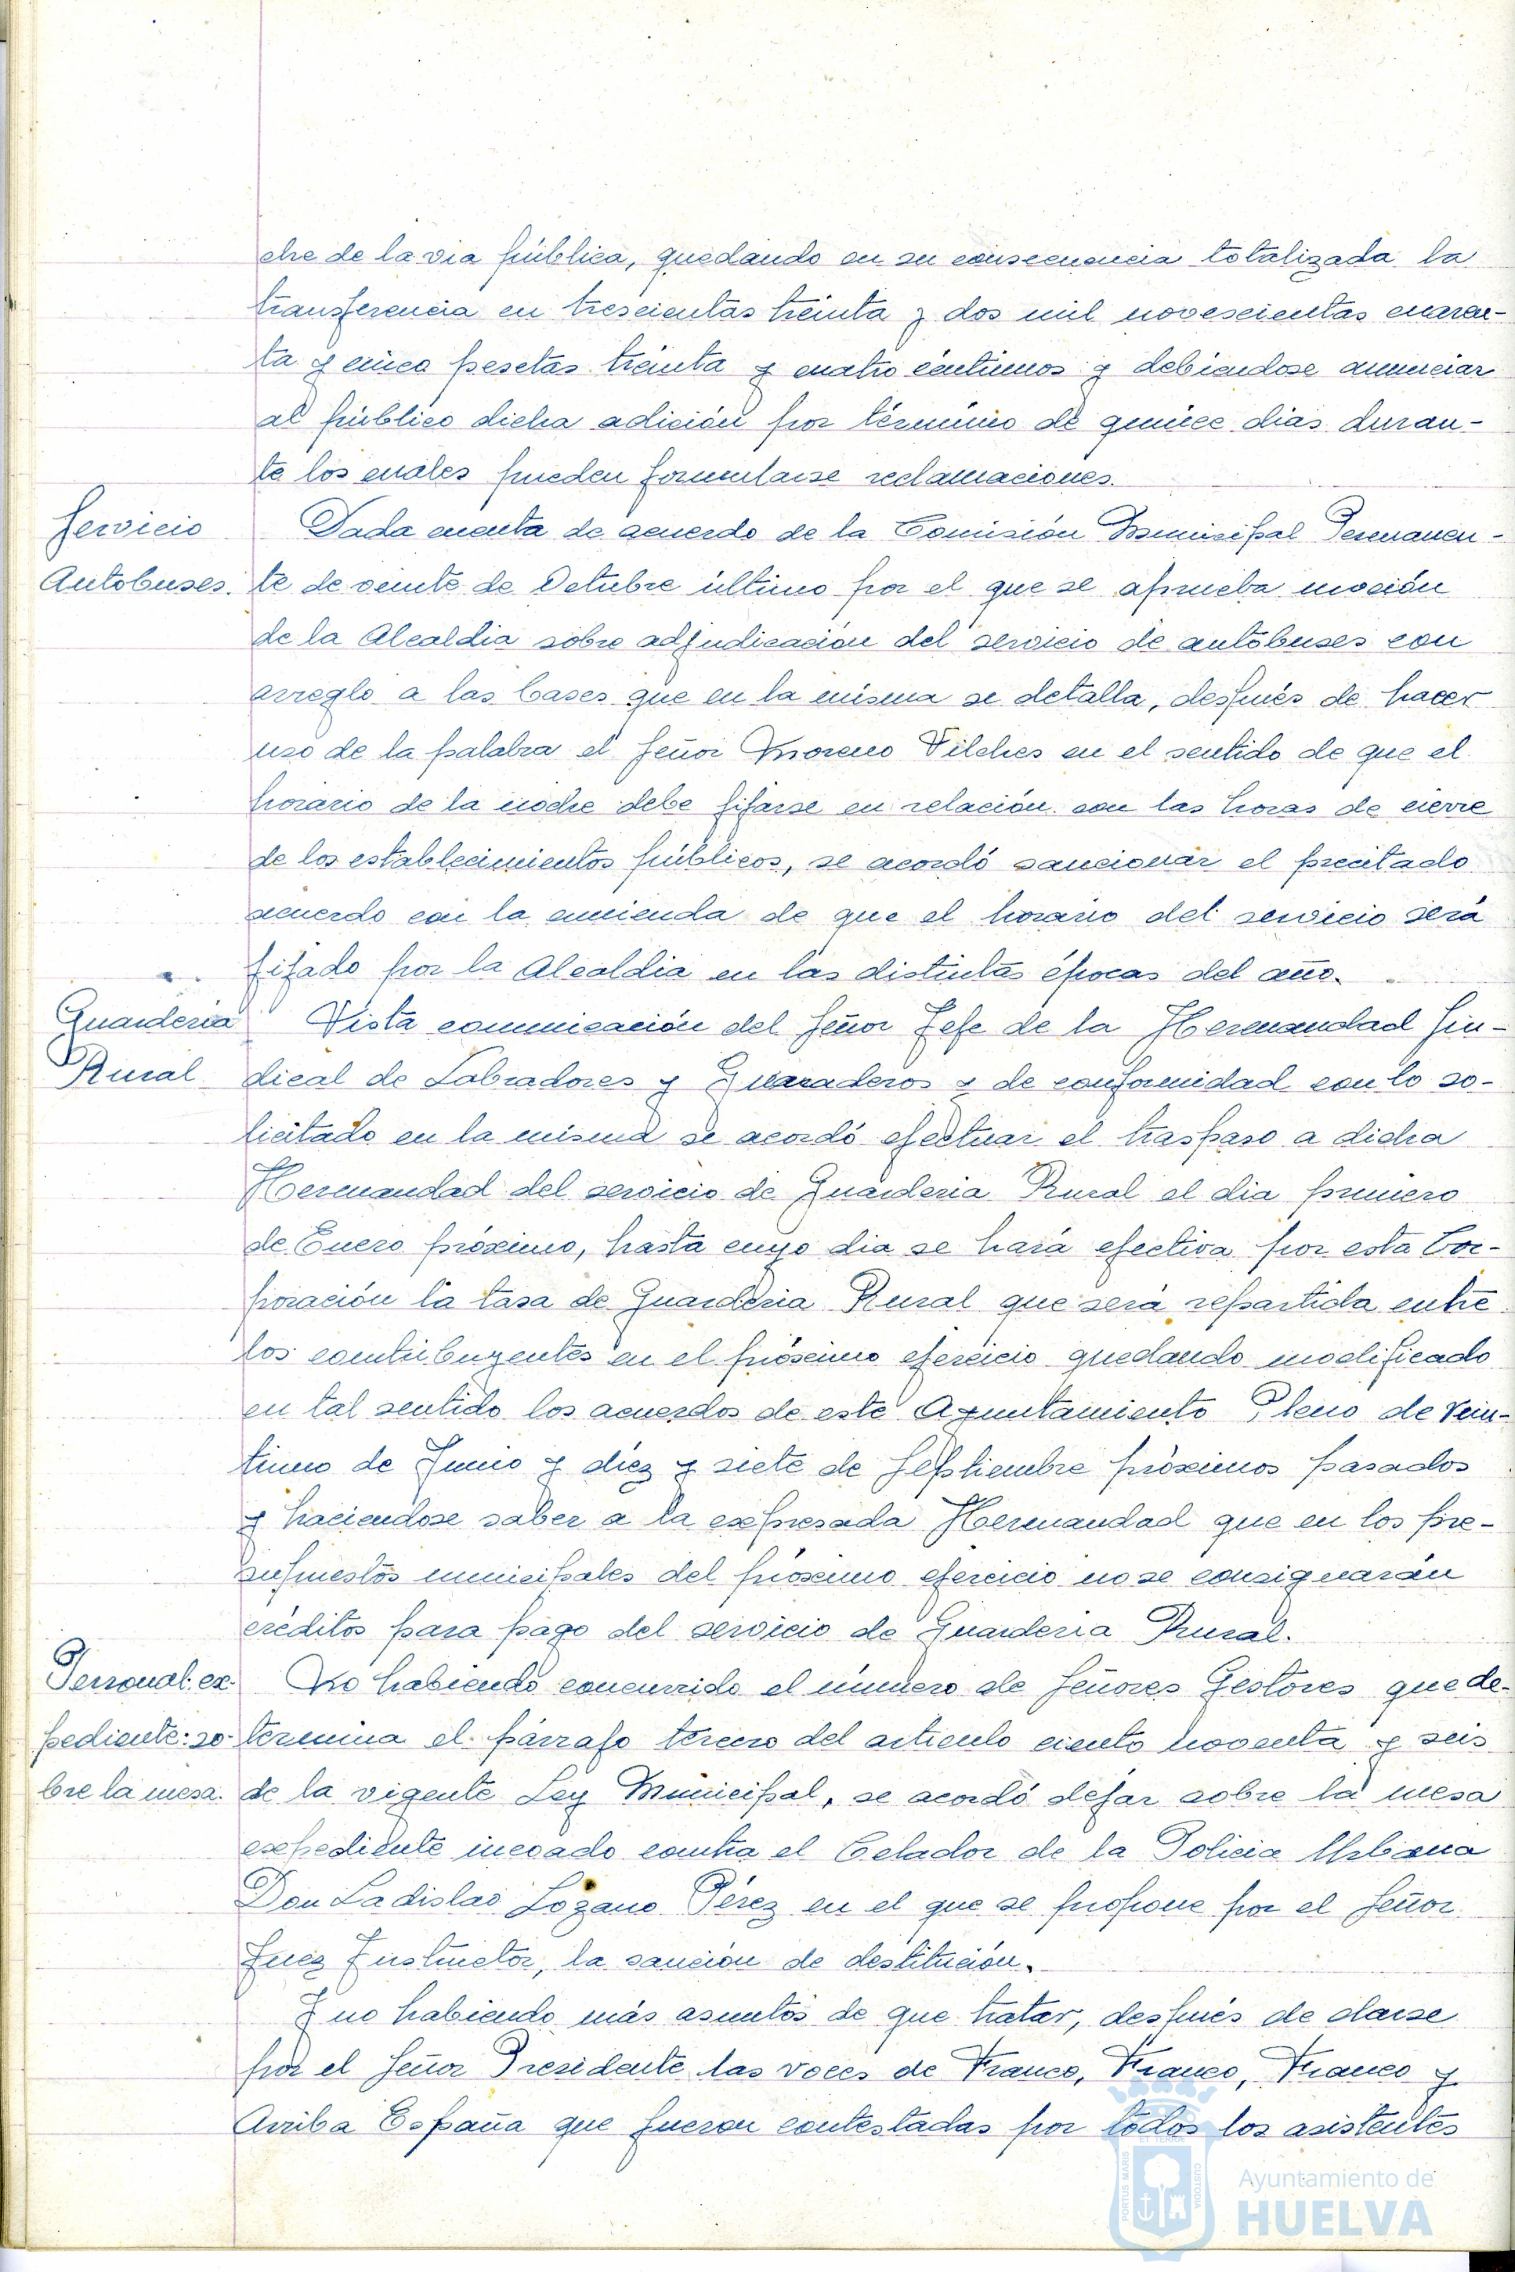 che de la via pública, quedando en su consecuencia totalizada la
transferencia en trescientas treinta y dos mil novescientas cuaren-
ta y cinco pesetas treinta y cuatro céntimos y debiendose anunciar
al público dicha adición por término de quince dias duran-
te los cuales pueden formularse reclamaciones.
Servicio
Autobuses.
Dada cuenta de acuerdo de la Comisión Municipal Permanen-
te de veinte de Octubre último por el que se aprueba moción
de la Alcaldia sobre adjudicación del servicio de autobuses con
arreglo a las bases que en la misma se detalla, después de hacer
uso de la palabra el Señor Moreno Vilches en el sentido de que el
horario de la noche debe fijarse en relación con las horas de cierre
de los establecimientos públicos, se acordó sancionar el precitado
acuerdo con la enmienda de que el horario del servicio será
fijado por la Alcaldia en las distintas épocas del año.
Guarderia
Rural
Vista comunicación del Señor Jefe de la Hermandad Sin-
dical de Labradores y Ganaderos y de conformidad con lo so-
licitado en la misma se acordó efectuar el traspaso a dicha
Hermandad del servicio de Guarderia Rural el dia primero
de Enero próximo, hasta cuyo dia se hará efectiva por esta Cor-
poración la tasa de Guarderia Rural que será repartida entre
los contribuyentes en el próximo ejercicio quedando modificado
en tal sentido los acuerdos de este Ayuntamiento Pleno de vein-
tiuno de Junio y diez y siete de Septiembre próximos pasados
y haciendose saber a la expresada Hermandad que en los pre-
supuestos municipales del próximo ejercicio no se consignarán
créditos para pago del servicio de Guarderia Rural.
Personal: ex-
pediente: so-
bre la mesa.
No habiendo concurrido el número de Señores Gestores que de-
termina el párrafo tercero del articulo ciento noventa y seis
de la vigente Ley Municipal, se acordó dejar sobre la mesa
expediente incoado contra el Celador de la Policia Urbana
Don Ladislao Lozano Pérez en el que se propone por el Señor
Juez Instructor, la sanción de destitución.
Y no habiendo más asuntos de que tratar, después de darse
por el Señor Presidente las voces de Franco, Franco, Franco y
Arriba España que fueron contestadas por todos los asistentes
PORTUS MARIS
ET TERRAE
CUSTODIA
Ayuntamiento de
HUELVA